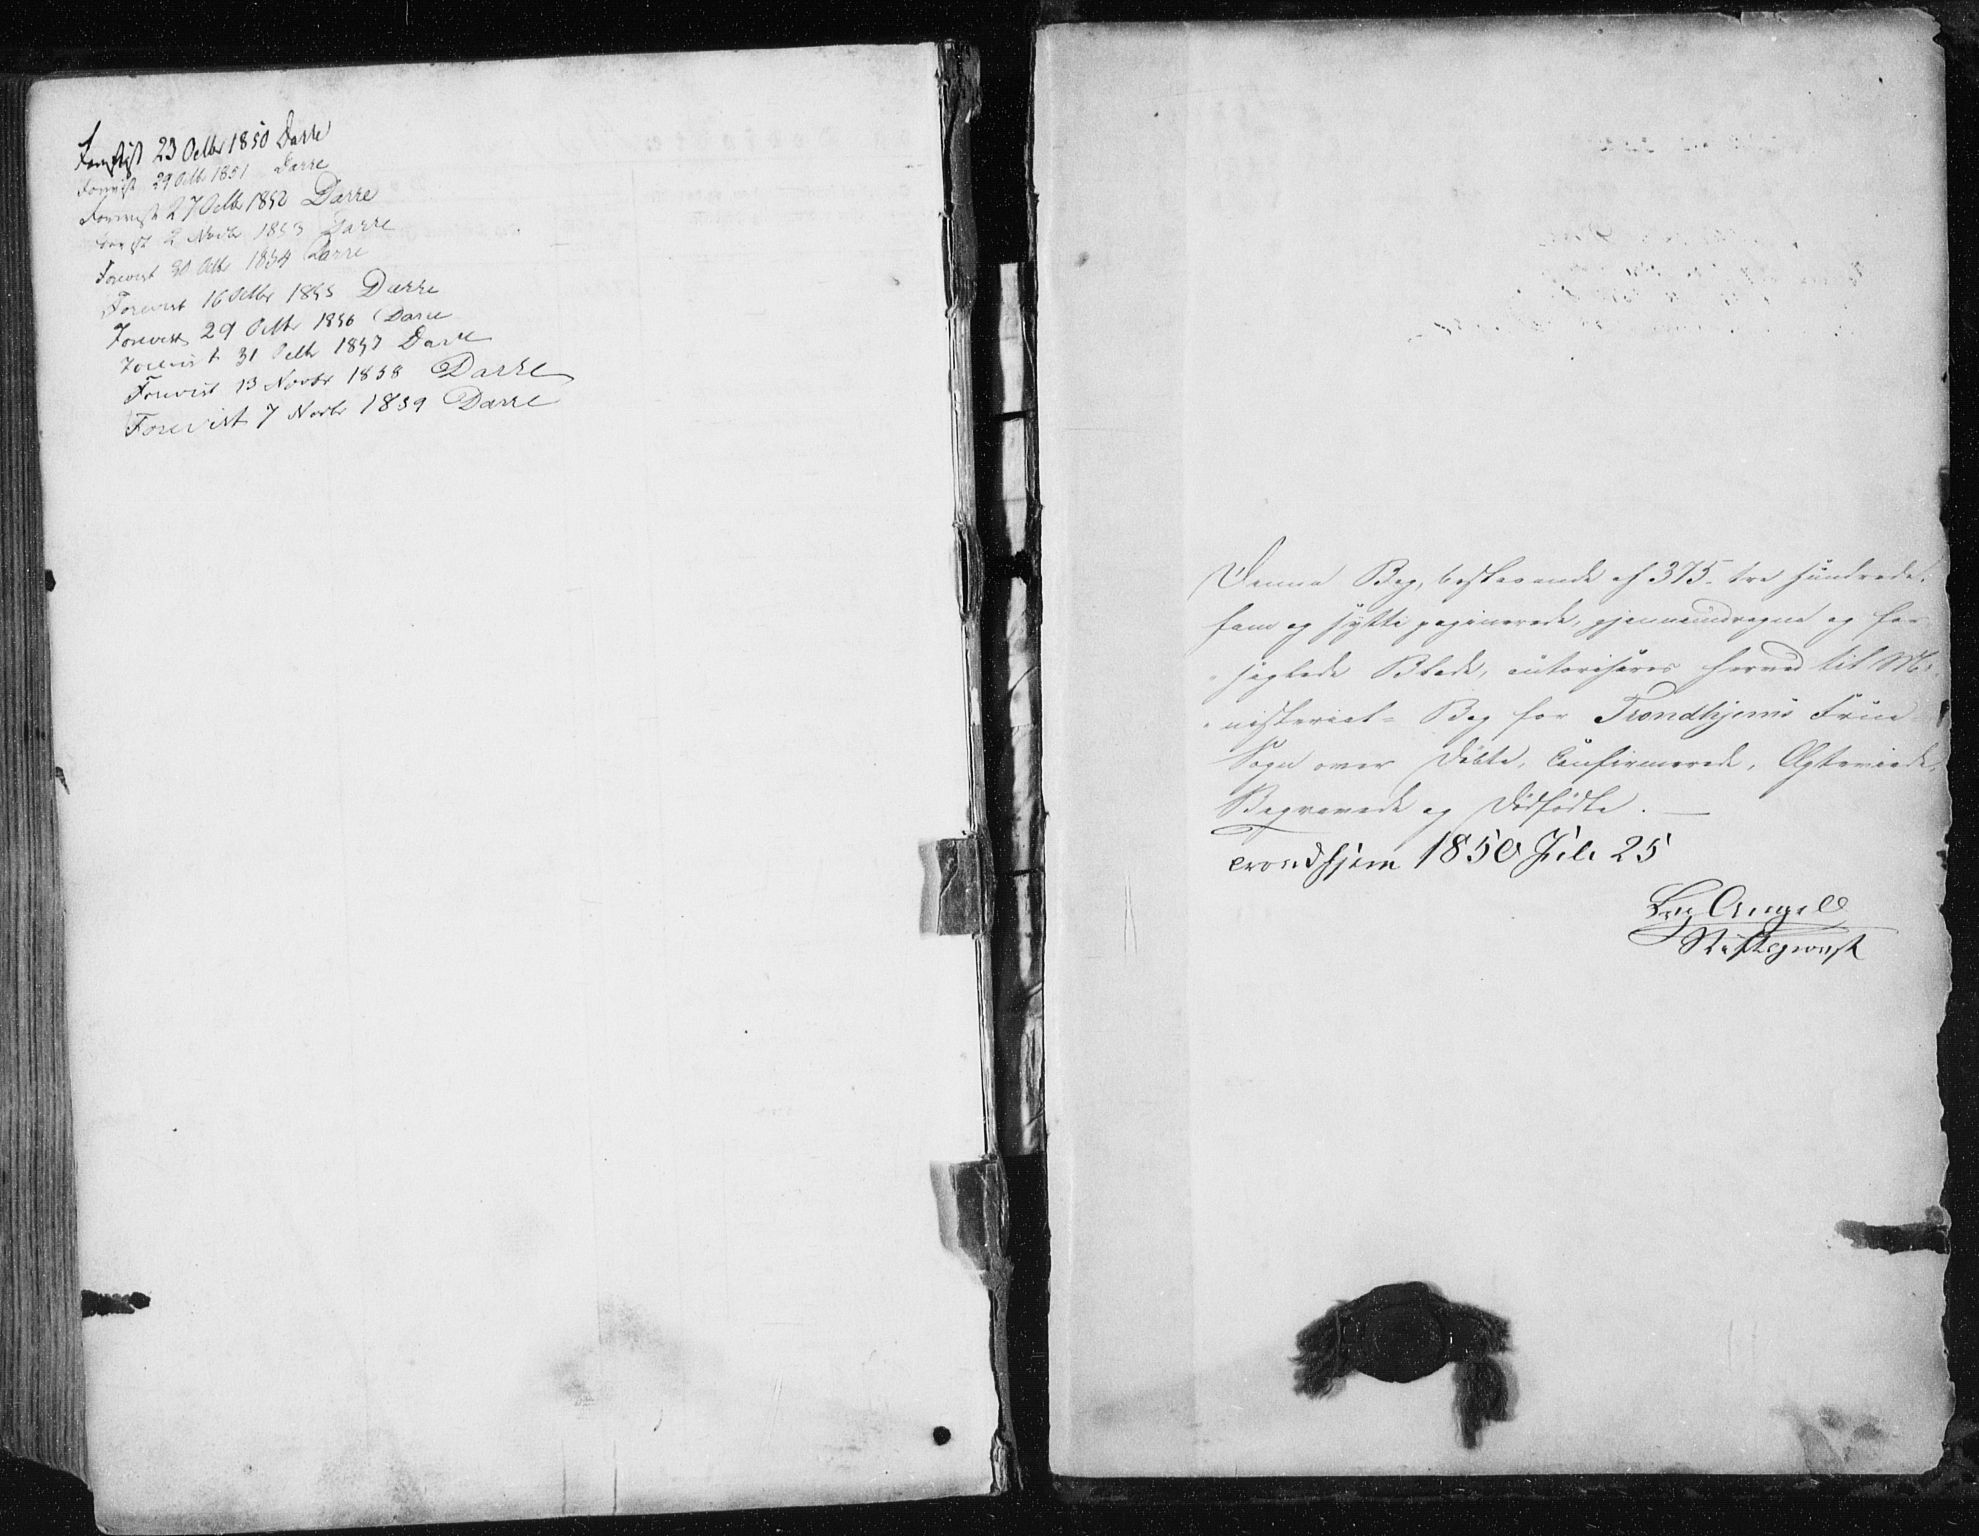 Forevist 23 Octbr 1850 Darre
Forevist 29 Octbr 1851 Darre
Forevist 27 Octbr 1852 Darre
Forevist 2 Novbr 1853 Darre
Forevist 30 Octbr 1854 Darre
Forevist 16 Octbr 1855 Darre
Forevist 29 Octbr 1856 Darre
Forevist 31 Octbr 1857 Darre
Forevist 13 Novbr 1858 Darre
Forevist 7 Novbr 1859 Darre
Denne Bog, bestaaende af 375 - tre hundrede,
fem og sytti paginerede, gjennemdragne og for-
seglede Blade, autoriseres herved til Mi-
nisterial-Bog for Trondhjems Frue
Sogn over Døbte, Confirmerede, Ægteviede,
Begravede og Dødfødte. —
Trondhjem 1850 Juli 25
Angell
Stiftsprovst